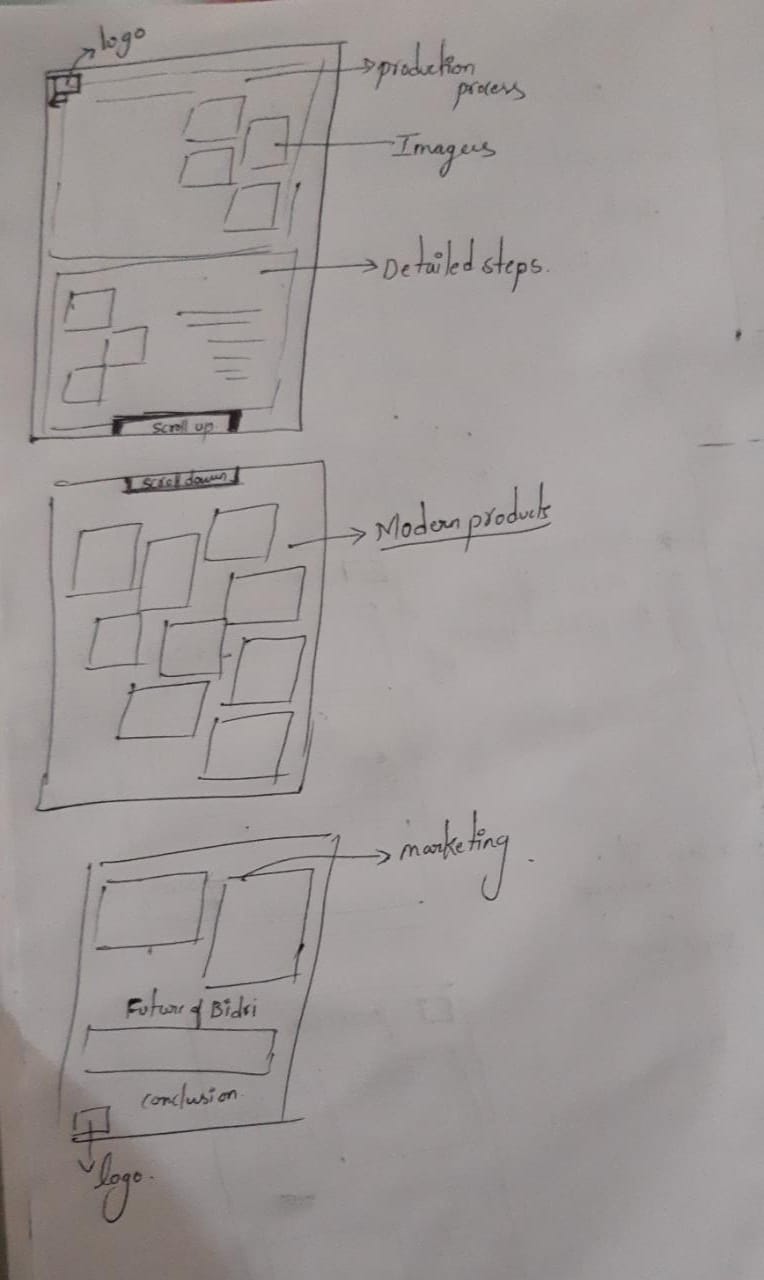 logo
production
process
Images
Detailed steps.
Scroll up
Scroll down
Modern products
marketing.
Future of Bidri
conclusion.
logo.